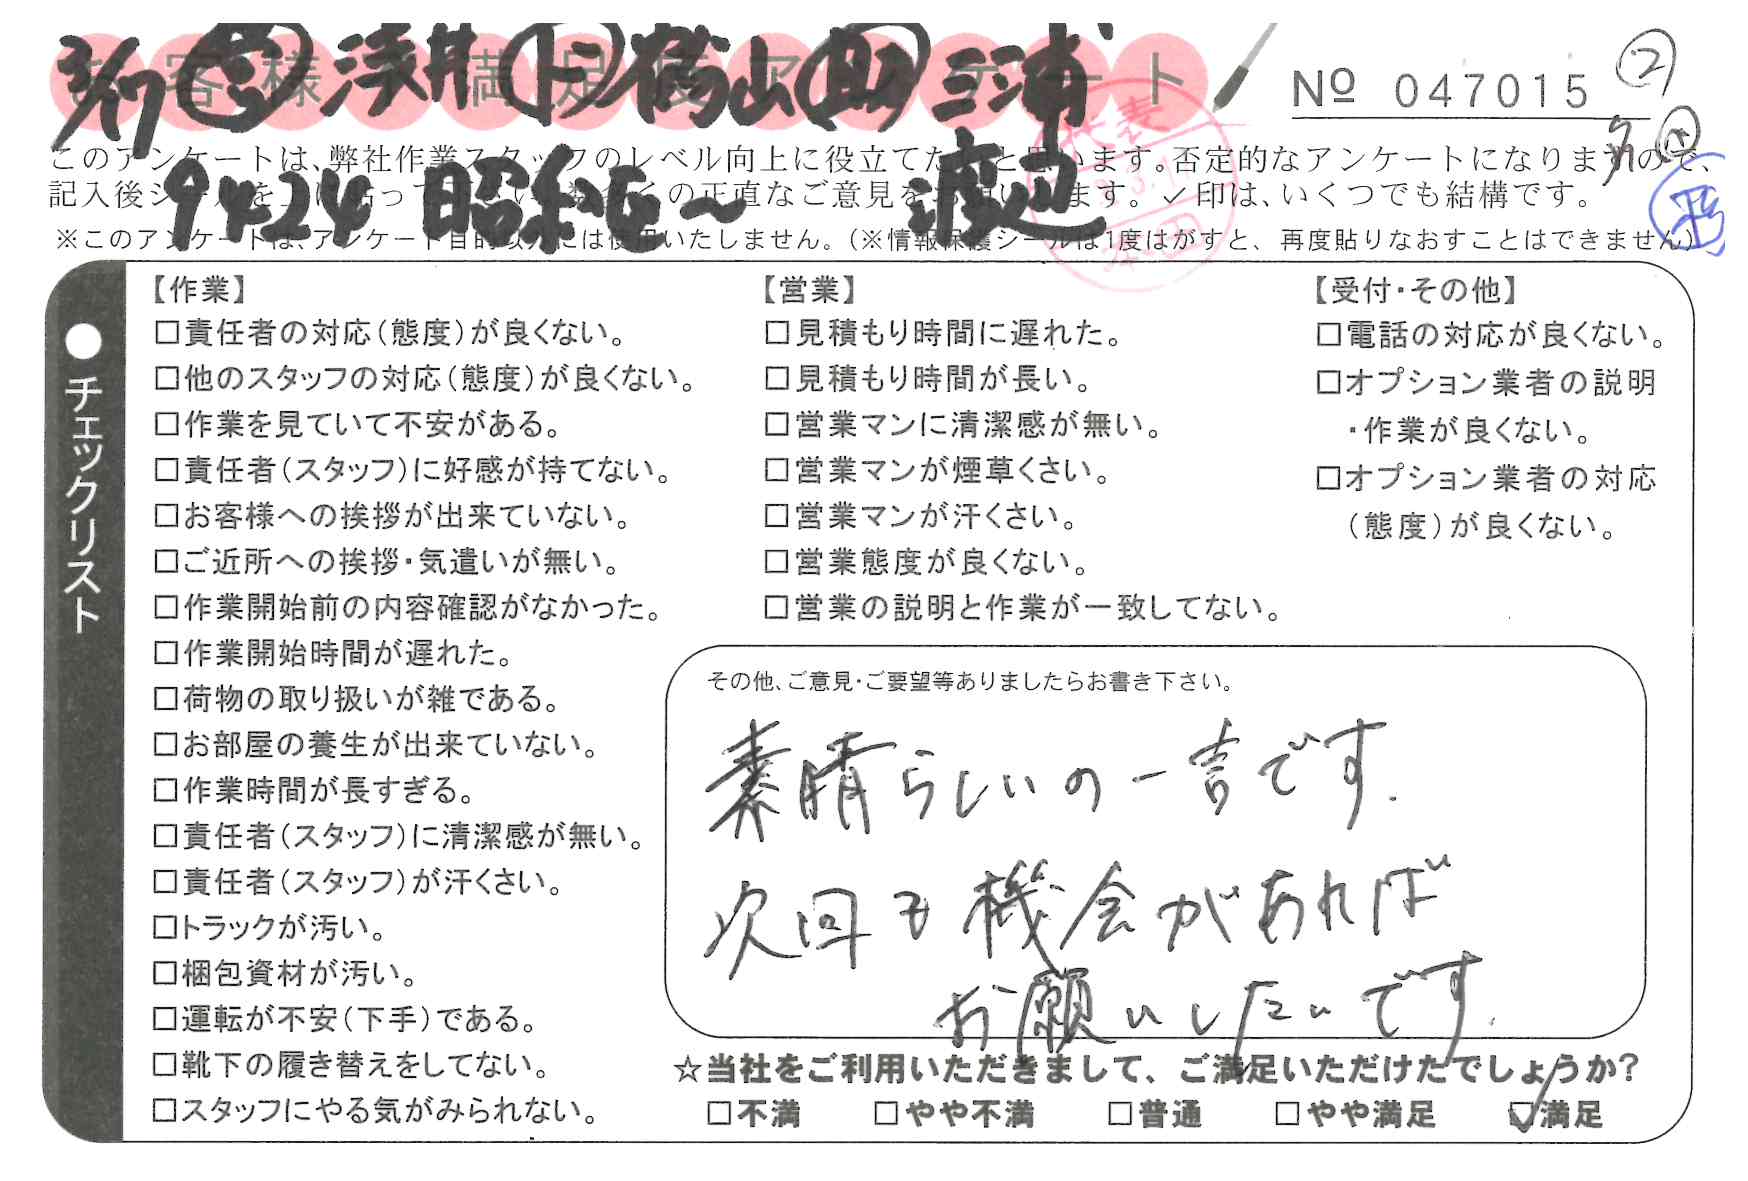 お客様満足度アンケート
3/17 浅井 横山 助 三浦
9424 昭和区〜 渡辺
№ 047015
②
このアンケートは、弊社作業スタッフのレベル向上に役立てたいと思います。否定的なアンケートになりますので、
記入後シールを上に貼って下さい。数多くの正直なご意見をお願いします。✓印は、いくつでも結構です。
※このアンケートは、アンケート目的以外には使用いたしません。(※情報保護シールは1度はがすと、再度貼りなおすことはできません)
●チェックリスト
【作業】
□責任者の対応(態度)が良くない。
□他のスタッフの対応(態度)が良くない。
□作業を見ていて不安がある。
□責任者(スタッフ)に好感が持てない。
□お客様への挨拶が出来ていない。
□ご近所への挨拶・気遣いが無い。
□作業開始前の内容確認がなかった。
□作業開始時間が遅れた。
□荷物の取り扱いが雑である。
□お部屋の養生が出来ていない。
□作業時間が長すぎる。
□責任者(スタッフ)に清潔感が無い。
□責任者(スタッフ)が汗くさい。
□トラックが汚い。
□梱包資材が汚い。
□運転が不安(下手)である。
□靴下の履き替えをしてない。
□スタッフにやる気がみられない。
【営業】
□見積もり時間に遅れた。
□見積もり時間が長い。
□営業マンに清潔感が無い。
□営業マンが煙草くさい。
□営業マンが汗くさい。
□営業態度が良くない。
□営業の説明と作業が一致してない。
【受付・その他】
□電話の対応が良くない。
□オプション業者の説明
・作業が良くない。
□オプション業者の対応
(態度)が良くない。
その他、ご意見・ご要望等ありましたらお書き下さい。
素晴らしいの一言です.
次回も機会があれば
お願いしたいです.
☆当社をご利用いただきまして、ご満足いただけたでしょうか?
□不満 □やや不満 □普通 □やや満足 ☑満足